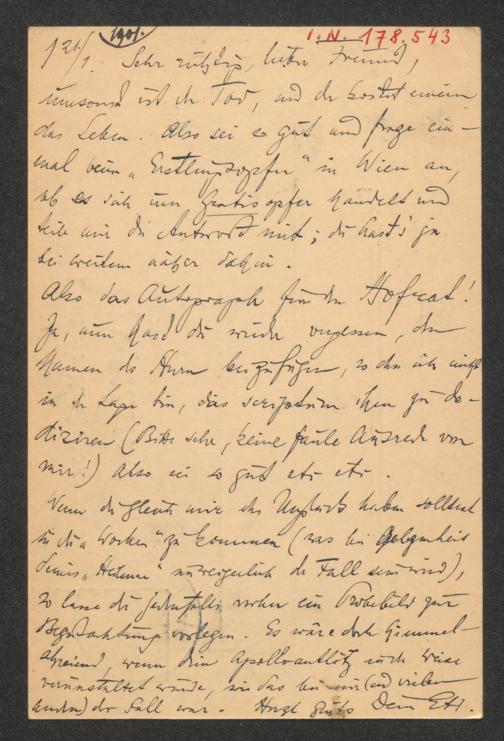 1901.
I. N. 178.543
21/1. Sehr rühriger, lieber Freund,
umsonst ist der Tod, und der kostet einem
das Leben. Also sei so gut und frage ein-
mal beim „Erstlingsopfer“ in Wien an,
ob es sich um Gratisopfer handelt und
teile mir die Antwort mit; du hast's ja
bei weitem näher dahin.
Also das Autograph für den Hofrat!
Ja, nun hast du wieder vergessen, den
Namen des Herrn beizufügen, so dass ich nicht
in der Lage bin, das scriptum ihm zu de-
diziren (Bitte sehr, keine faule Ausrede von
mir!) Also sei so gut etc etc.
Wenn du gleich mir das Unglück haben solltest
in die „Wochen“ zu kommen (was bei Gelegenheit
deines „ unweigerlich der Fall sein wird),
so lasse dir jedenfalls vorher ein Probebild zur
Begutachtung vorlegen. Es wäre doch himmel-
schreiend, wenn dein Apolloantlitz solch Weise
verunstaltet würde, wie das bei mir (und vielen
andern) der Fall war. Herzl Grüße Dein